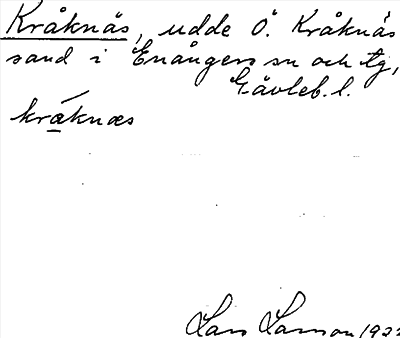 Kråknäs, udde Ö. Kråknäs
sand i Enångers sn och tg,
Gävleb. l.
kråknæs
Lars Larson